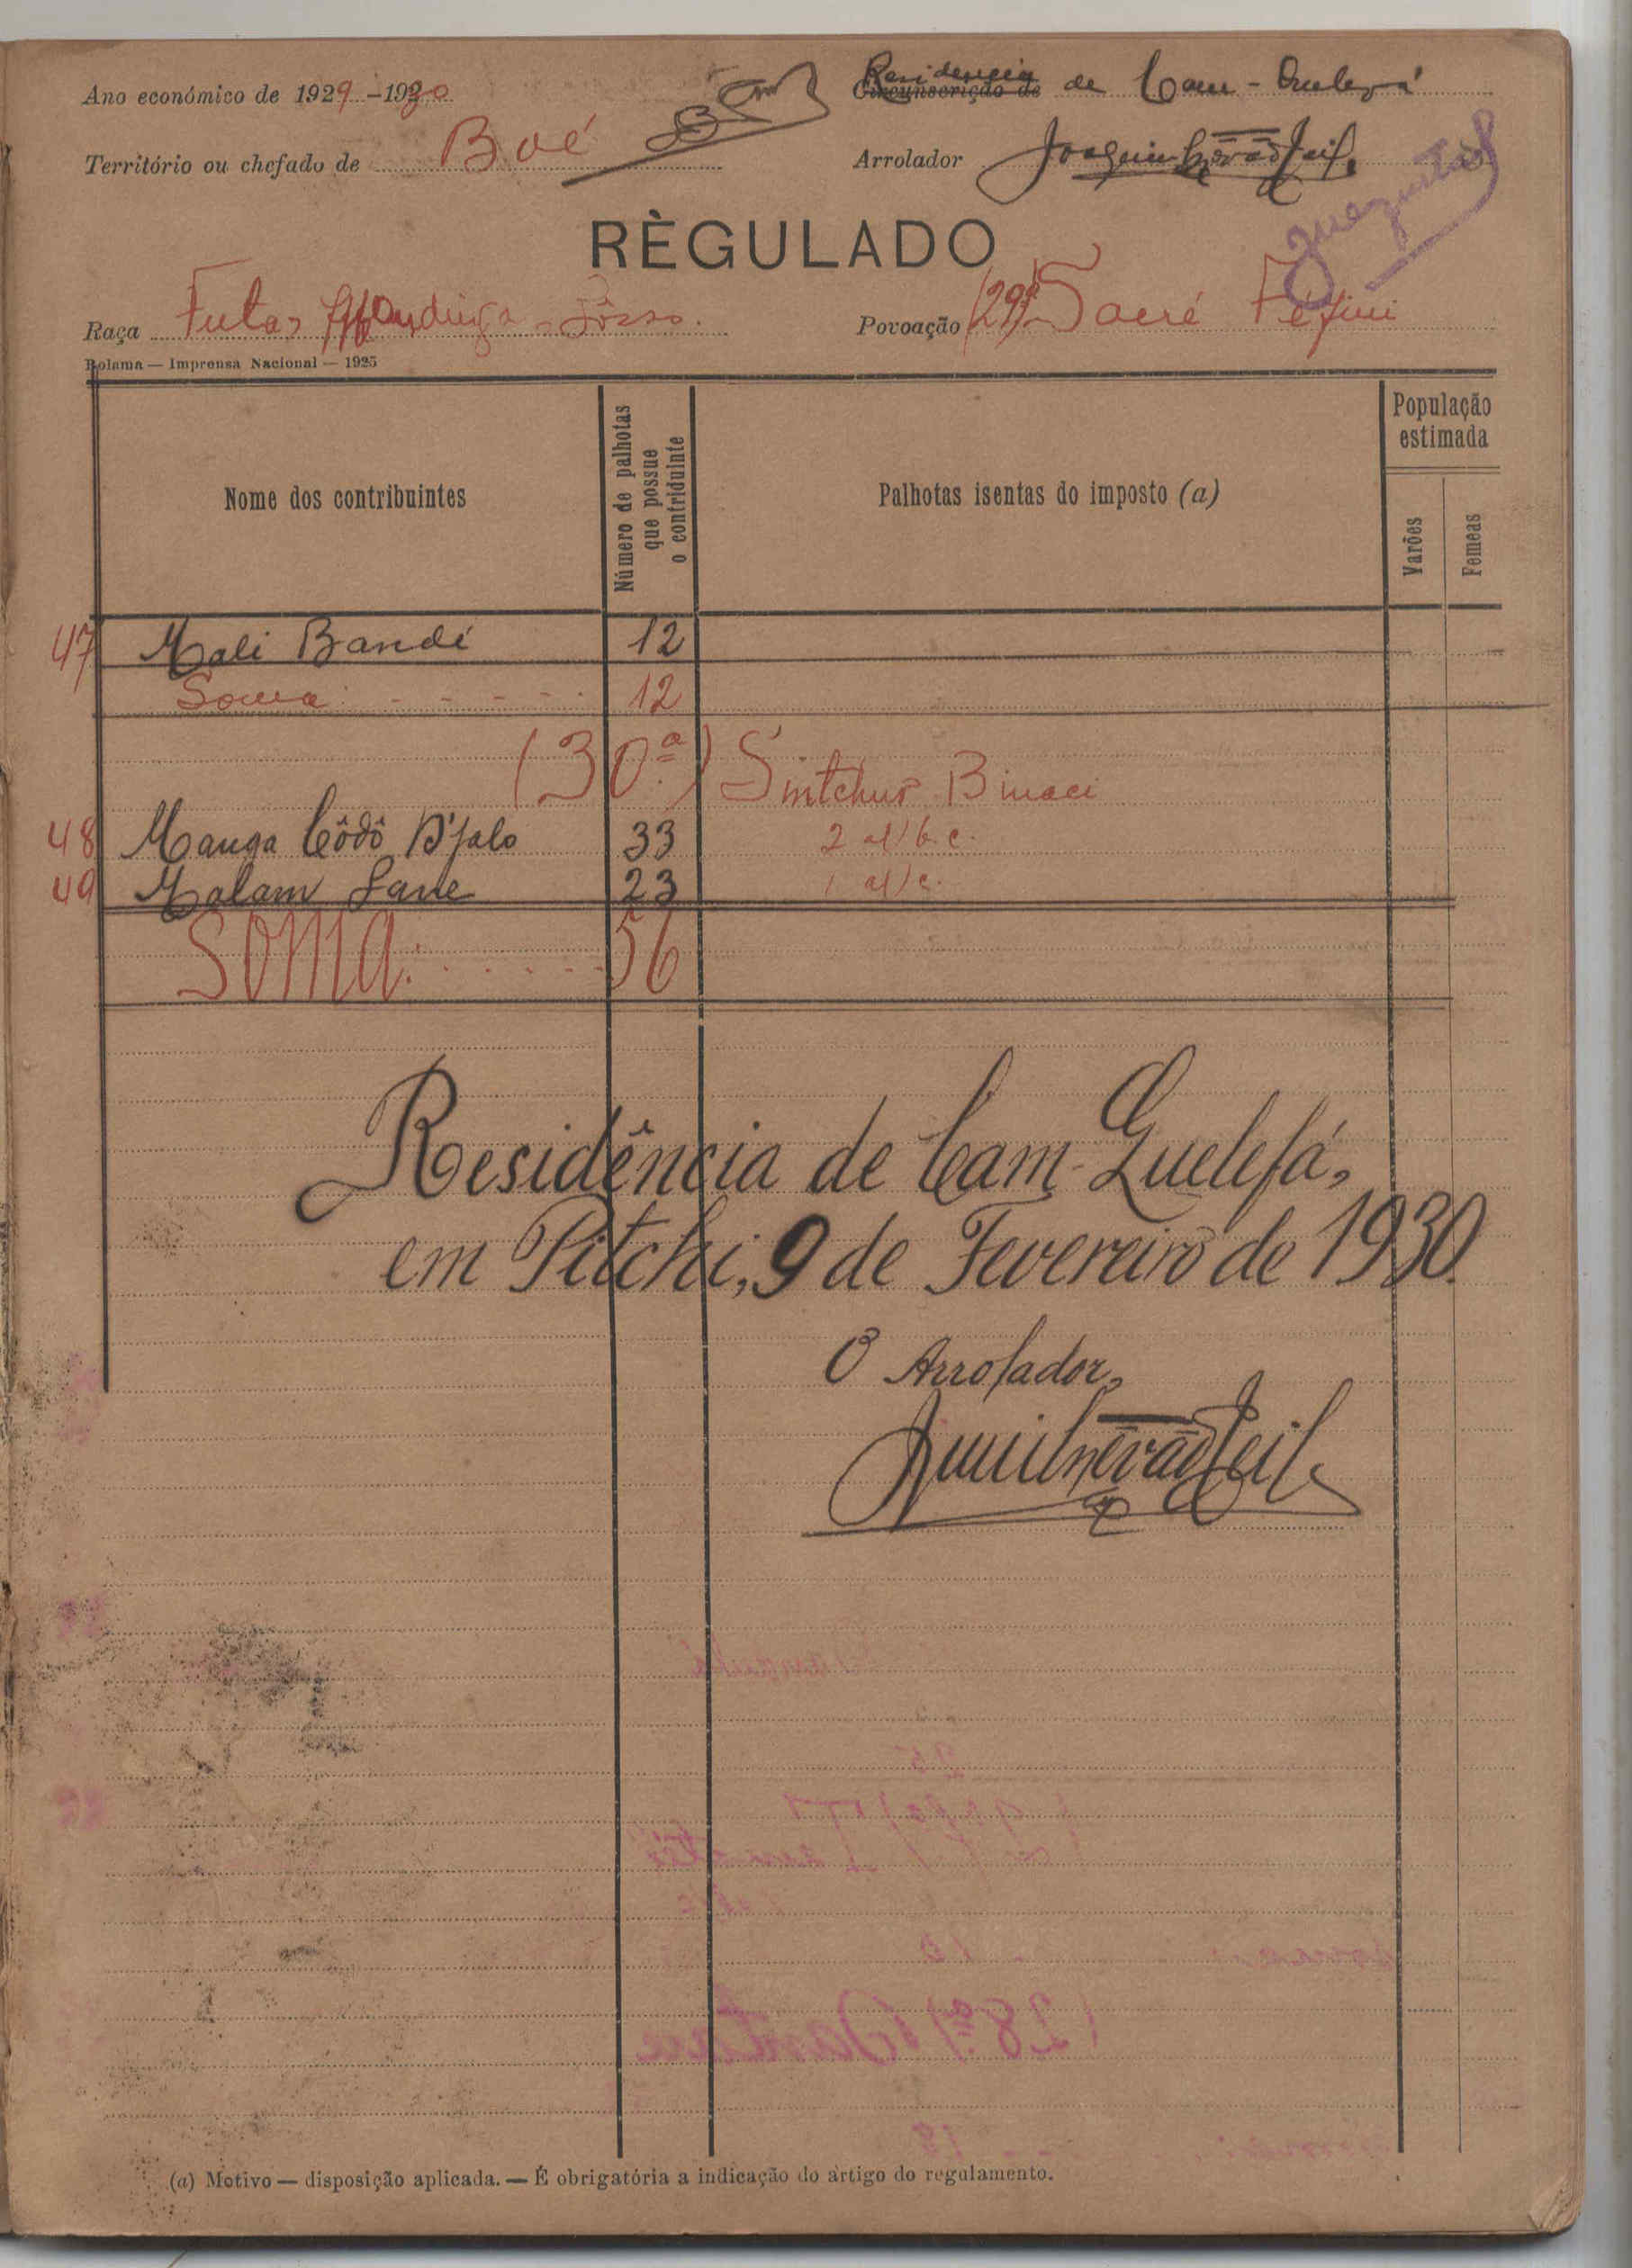 Ano económico de 1929-1930
Residencia de Cam-Quelefá
Território ou chefado de Boé
Arrolador Joaquim
RÈGULADO
Raça Futa, Mandinga
Povoação (29ª) Sacré Féfini
Bolama — Imprensa Nacional — 1925
Nome dos contribuintes
Número de palhotas que possue o contriduinte
Palhotas isentas do imposto (a)
População estimada
Varões
Femeas
47 Mali Bandé 12
Soma - - - - - 12
(30.ª) Sintchur Binaci
48 Manga Côdô D'jalo 33 2 al) b. c.
49 Malam Sane 23 1 al) c.
SOMA: . . . . . . 56
Residência de Cam-Quelefá,
em Pitchi, 9 de Fevereiro de 1930.
O Arrolador,
(a) Motivo — disposição aplicada. — É obrigatória a indicação do artigo do regulamento.